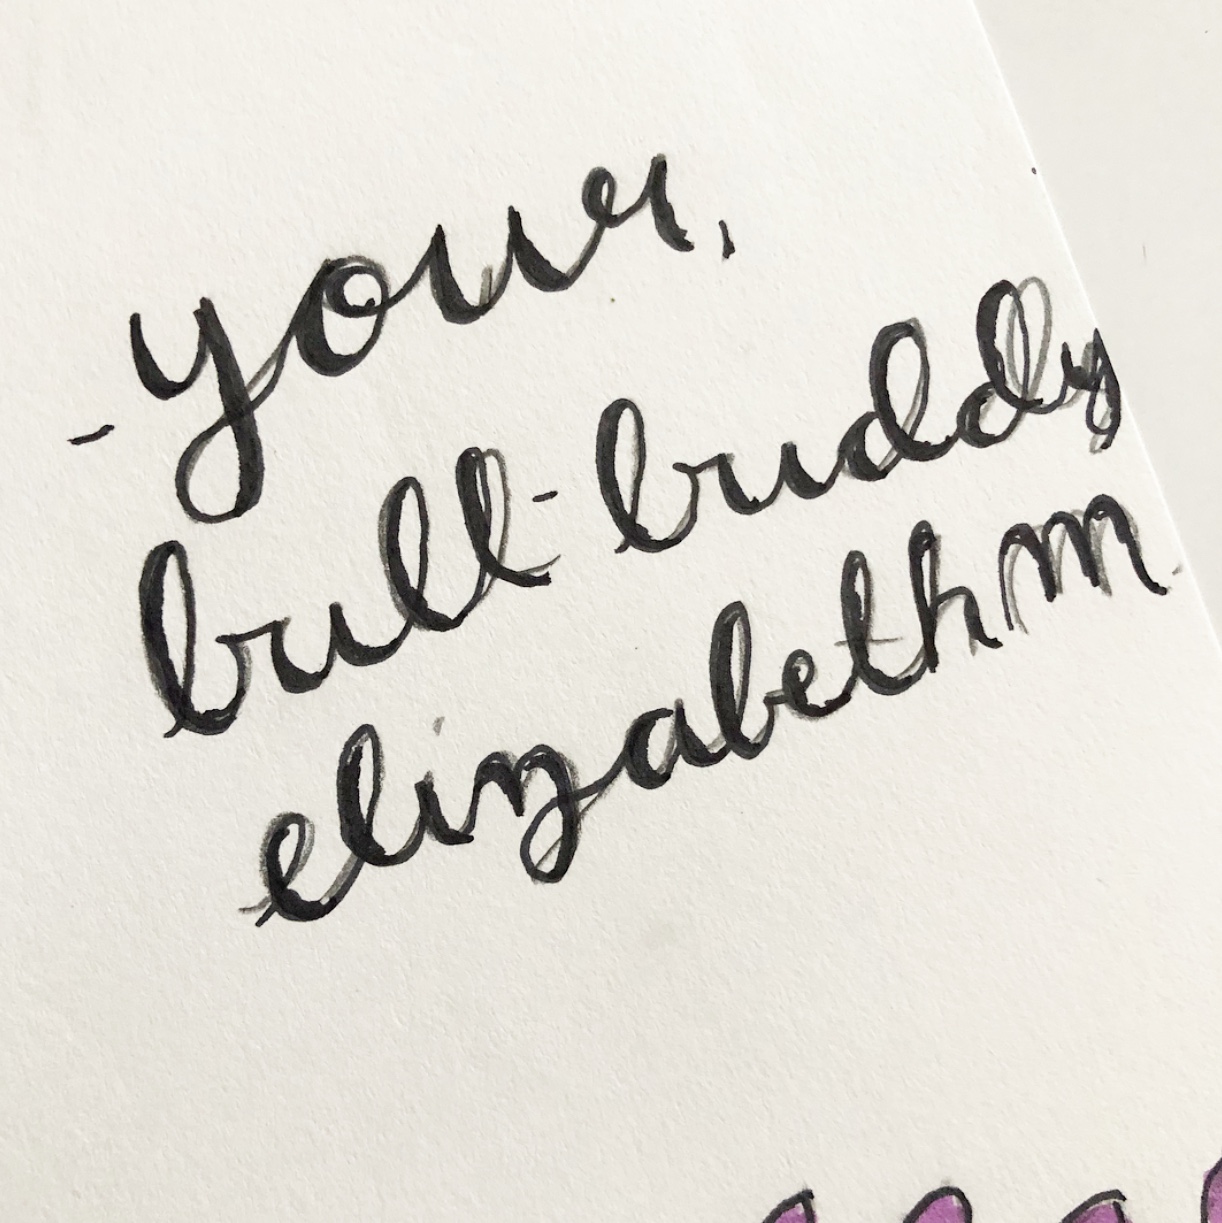 - your,
bull-buddy
elizabeth m.